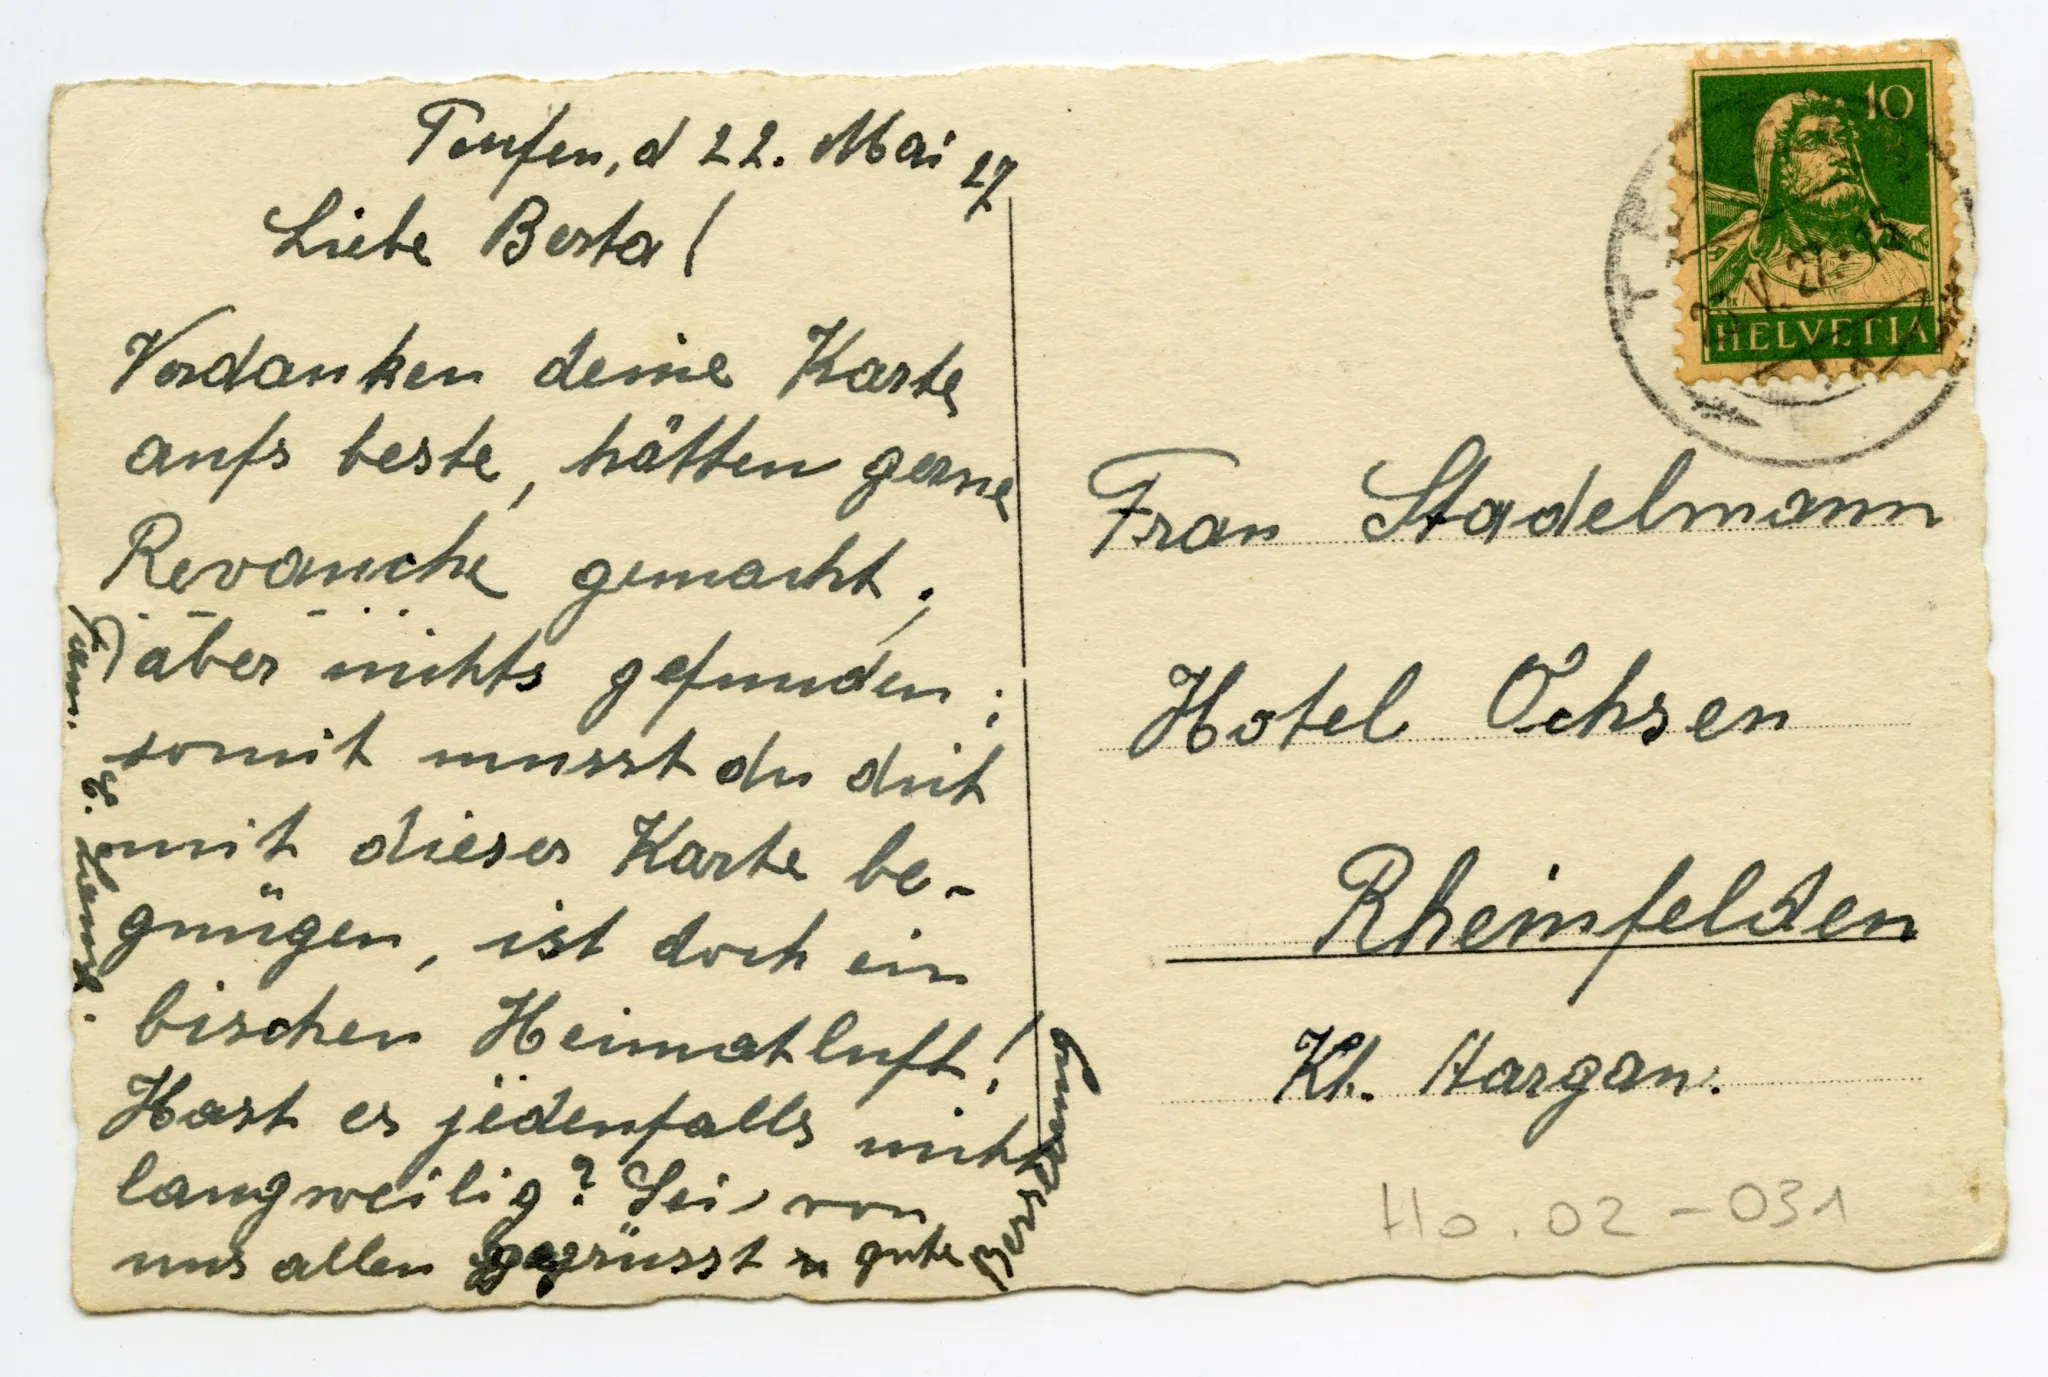 Teufen, d 22. Mai 27
Liebe Berta!
Verdanken deine Karte
aufs beste, hätten gerne
Revanche gemacht,
aber nichts gefunden;
somit musst du dich
mit dieser Karte be-
gnügen, ist doch ein
bischen Heimatluft!
Hast es jedenfalls nicht
langweilig? Sei von
uns allen gegrüsst u gute
Besserung
Fam. E.
10
HELVETIA
V. 27.
Frau Stadelmann
Hotel Ochsen
Rheinfelden
Kt. Aargau.
Ho. 02-031